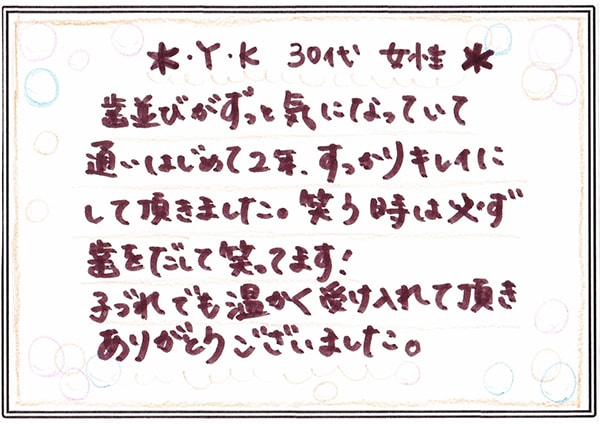 ＊・Y・K 30代 女性 ＊
歯並びがずっと気になっていて
通いはじめて2年、すっかりキレイに
して頂きました。笑う時は必ず
歯をだして笑ってます!
子づれでも温かく受け入れて頂き
ありがとうございました。